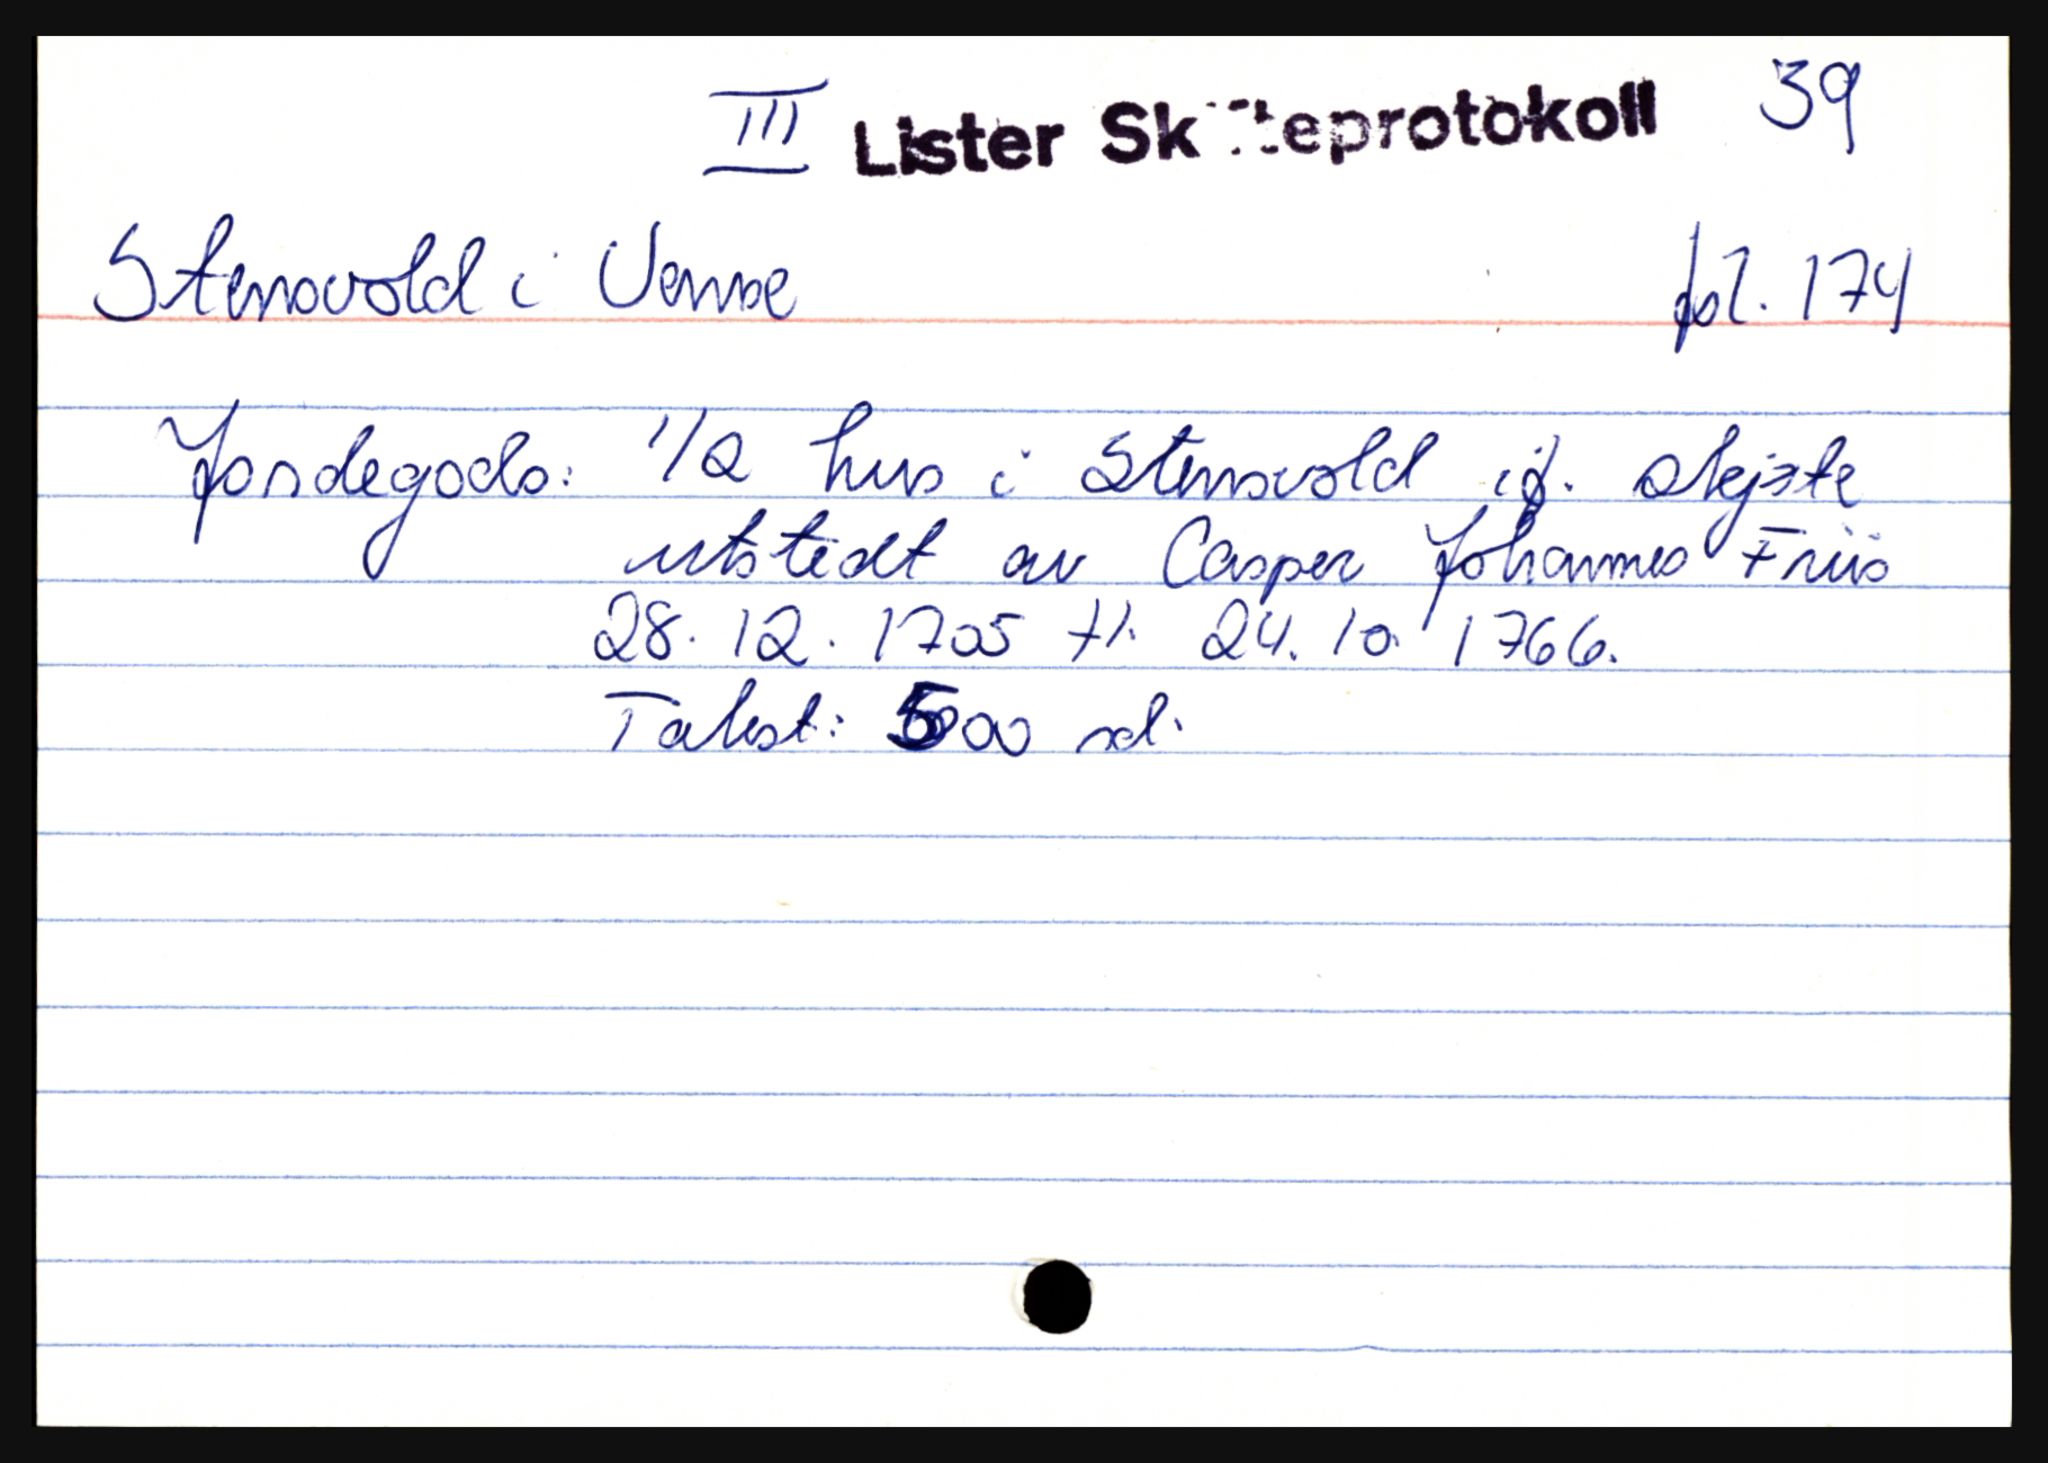 III Lister Skifteprotokoll 39
Stensvold i Vanse fol. 174
Jordegods: 1/2 hus i Stensvold if. skjøte
utstedt av Casper Johannes Friis
28. 12. 1705 tl. 24. 10. 1766.
Takst: 5000 rd.